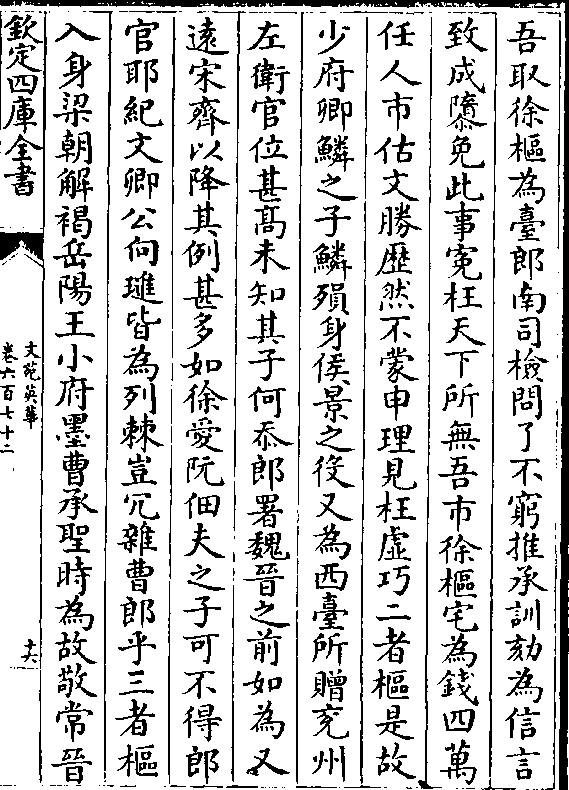 吾取徐樞為臺郎南司檢問了不窮推承訓劾為信言
致成隳免此事寃枉天下所無吾市徐樞宅為錢四萬
任人市估文勝歴然不蒙申理見枉虚巧二者樞是故
少府卿鱗之子鱗殞身侯景之役又為西臺所贈兖州
左衛官位甚髙未知其子何忝郎署魏晉之前如為又
逺宋齊以降其例甚多如徐愛阮佃夫之子可不得郎
官耶紀文卿公何璡皆為列棘豈冗雜曹郎乎三者樞
入身梁朝解褐岳陽王小府墨曹承聖時為故敬常晉
欽定四庫全書
文苑英華
卷六百七十二
十六